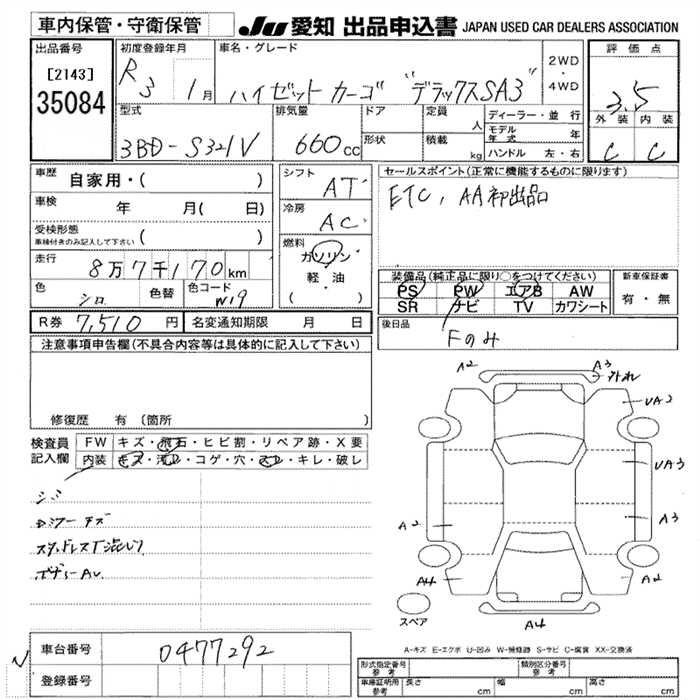 車内保管・守衛保管
JU 愛知 出品申込書 JAPAN USED CAR DEALERS ASSOCIATION
出品番号
[2143]
35084
初度登録年月
R3 1月
車名・グレード
ハイゼットカーゴ "デラックスSA3"
2WD
・
4WD
評価点
3.5
外装 内装
C C
型式
3BD-S321V
排気量
660cc
ドア
形状
定員
人
積載
kg
ディーラー・並行
モデル年式 年
ハンドル 左・右
車歴
自家用・( )
車検
年 月( 日)
受検形態
車検付きのみ記入して下さい ( )
走行
8万7千170km
色
シロ
色替
色コード
W19
シフト
AT
冷房
AC
燃料
ガソリン
軽・油
( )
セールスポイント(正常に機能するものに限ります)
ETC, AA初出品
装備品(純正品に限り○をつけてください)
PS PW エアB AW
SR ナビ TV カワシート
新車保証書
有・無
R券 7,510円
名変通知期限 月 日
後日品
Fのみ
注意事項申告欄(不具合内容等は具体的に記入して下さい)
修復歴 有(箇所 )
検査員
記入欄
FW キズ・飛石・ヒビ割・リペア跡・X要
内装 キズ・汚れ・コゲ・穴・スレ・キレ・破レ
スタッドレスT混じり
ボディーAU
A2
A3
外れ
UA2
UA3
A2
A3
A4
A2
A4
スペア
A-キズ E-エクボ U-凹み W-補修跡 S-サビ C-腐食 XX-交換済
車台番号
0477292
登録番号
N
形式指定番号
参考
類別区分番号
参考
車庫証明用
参考
長さ cm 幅 cm 高さ cm